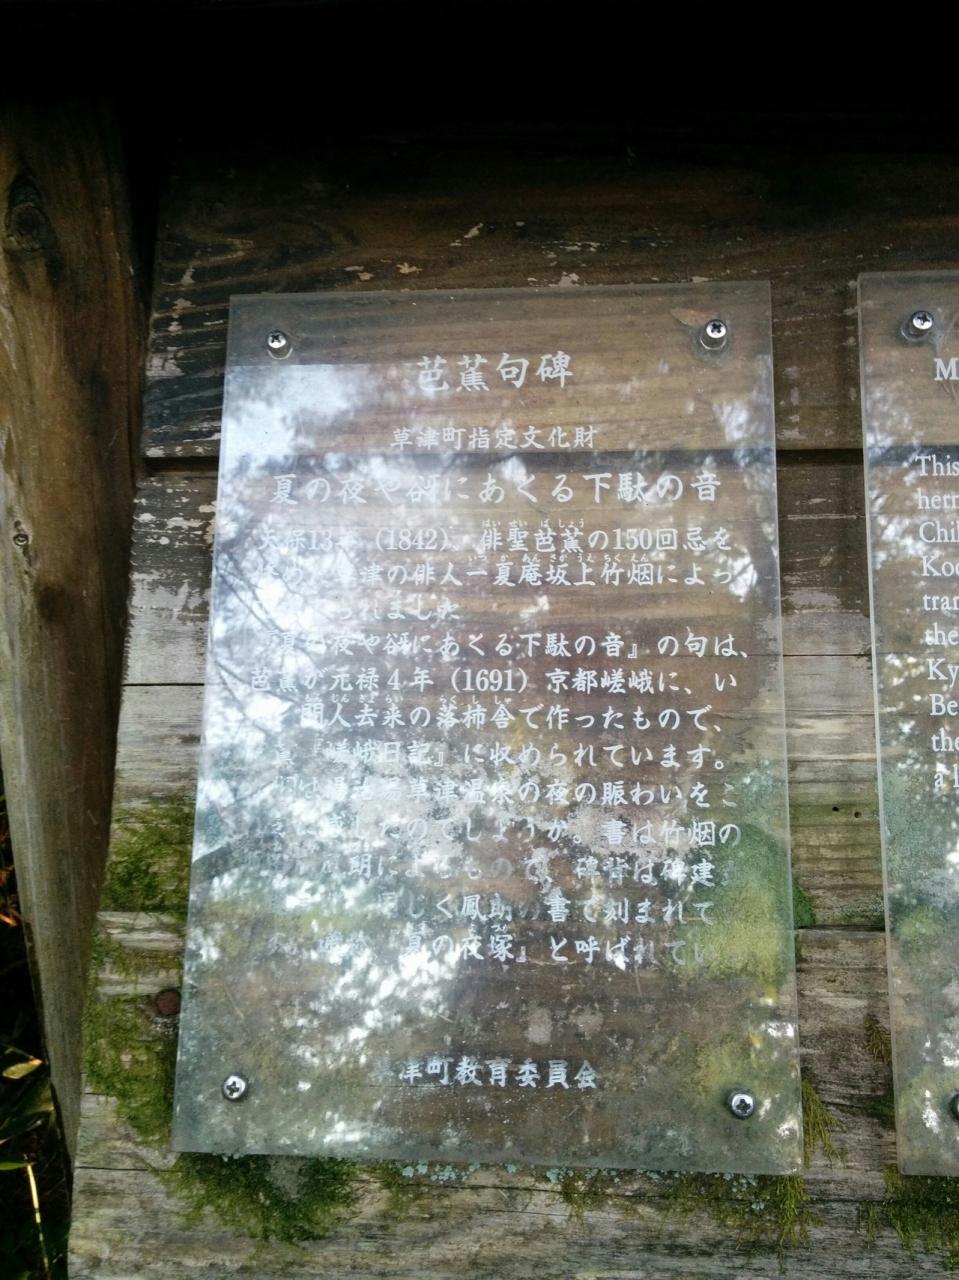 芭蕉句碑
草津町指定文化財
夏の夜や谺にあくる下駄の音
天保13年（1842）、俳聖芭蕉の150回忌を
津の俳人一夏庵坂上竹烟によっ
られました
『夏の夜や谺にあくる下駄の音』の句は、
芭蕉が元禄4年（1691）京都嵯峨に、い
門人去来の落柿舎で作ったもので、
『嵯峨日記』に収められています。
草津温泉の夜の賑わいをこ
のでしょうか。書は竹烟の
明によるもので、碑背は碑建
同じく鳳朗の書で刻まれて
夏の夜塚』と呼ばれてい
草津町教育委員会
M
This
hern
Chil
Koo
tran
the
Ky
Be
the
a l